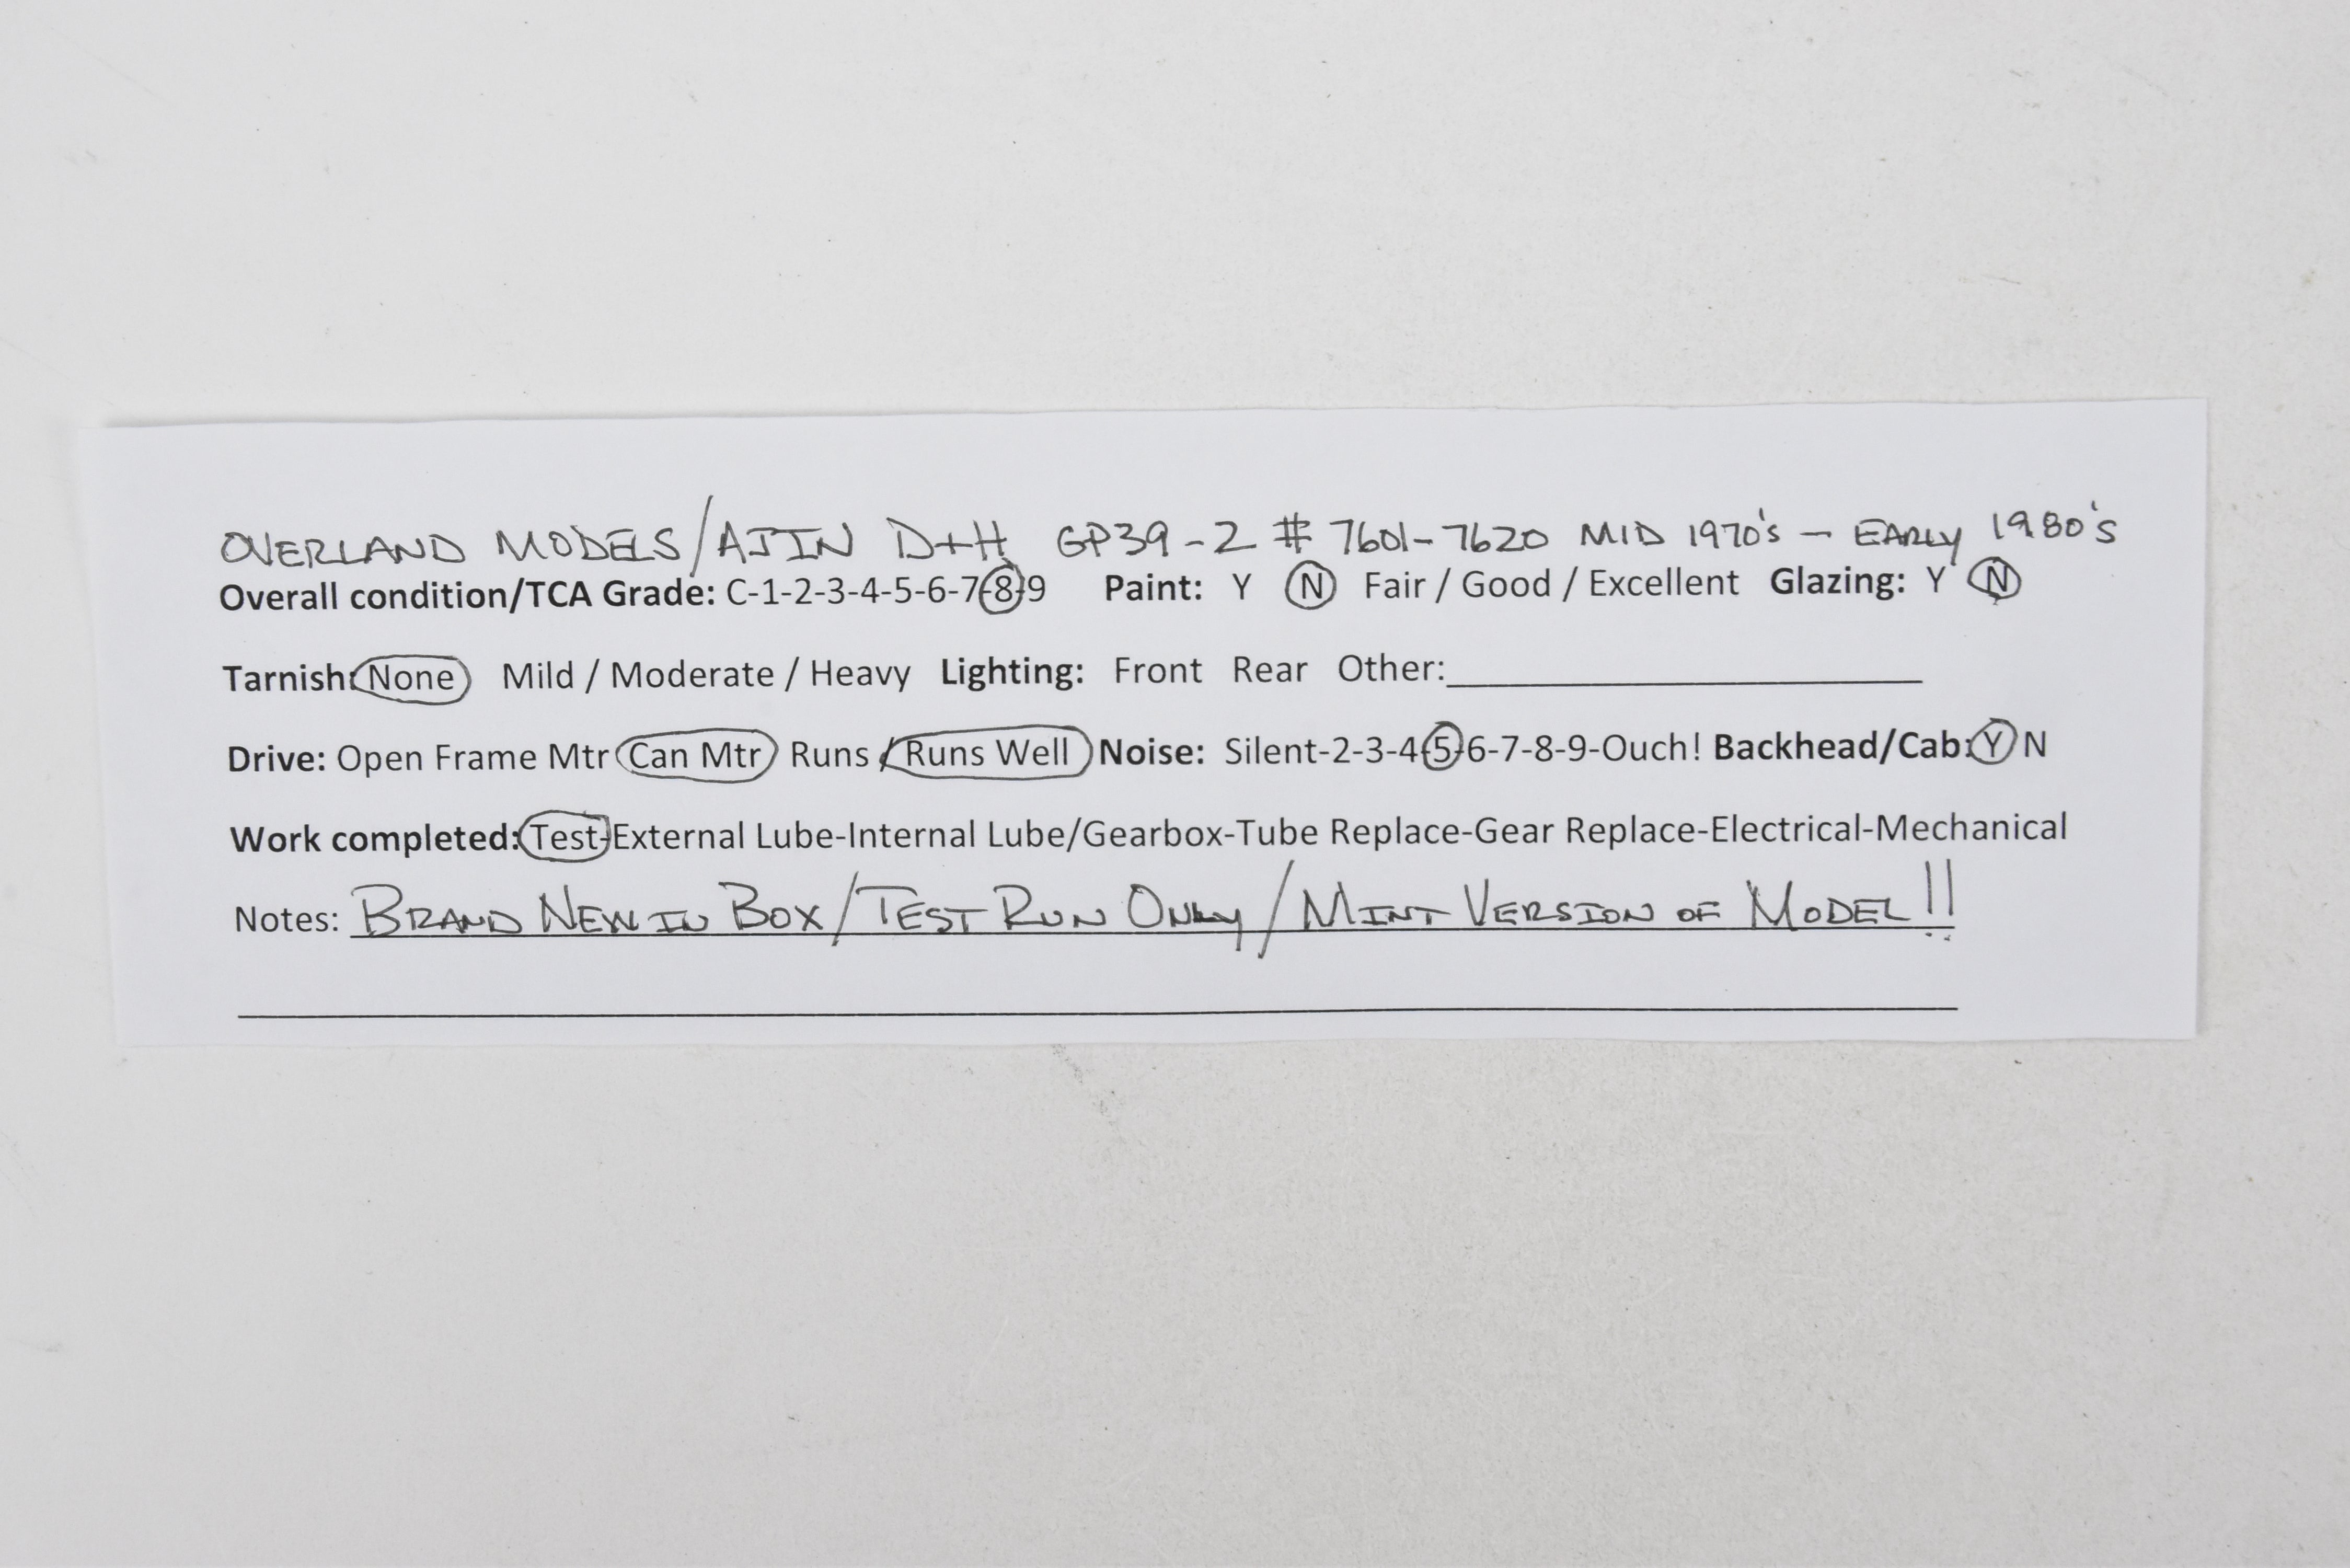 OVERLAND MODELS/AJIN D+H GP39-2 # 7601-7620 MID 1970's - EARLY 1980's
Overall condition/TCA Grade: C-1-2-3-4-5-6-7-8-9 Paint: Y N Fair / Good / Excellent Glazing: Y N
Tarnish: None Mild / Moderate / Heavy Lighting: Front Rear Other:
Drive: Open Frame Mtr Can Mtr Runs / Runs Well Noise: Silent-2-3-4-5-6-7-8-9-Ouch! Backhead/Cab: Y N
Work completed: Test-External Lube-Internal Lube/Gearbox-Tube Replace-Gear Replace-Electrical-Mechanical
Notes: BRAND NEW IN BOX/TEST RUN ONLY/MINT VERSION OF MODEL!!